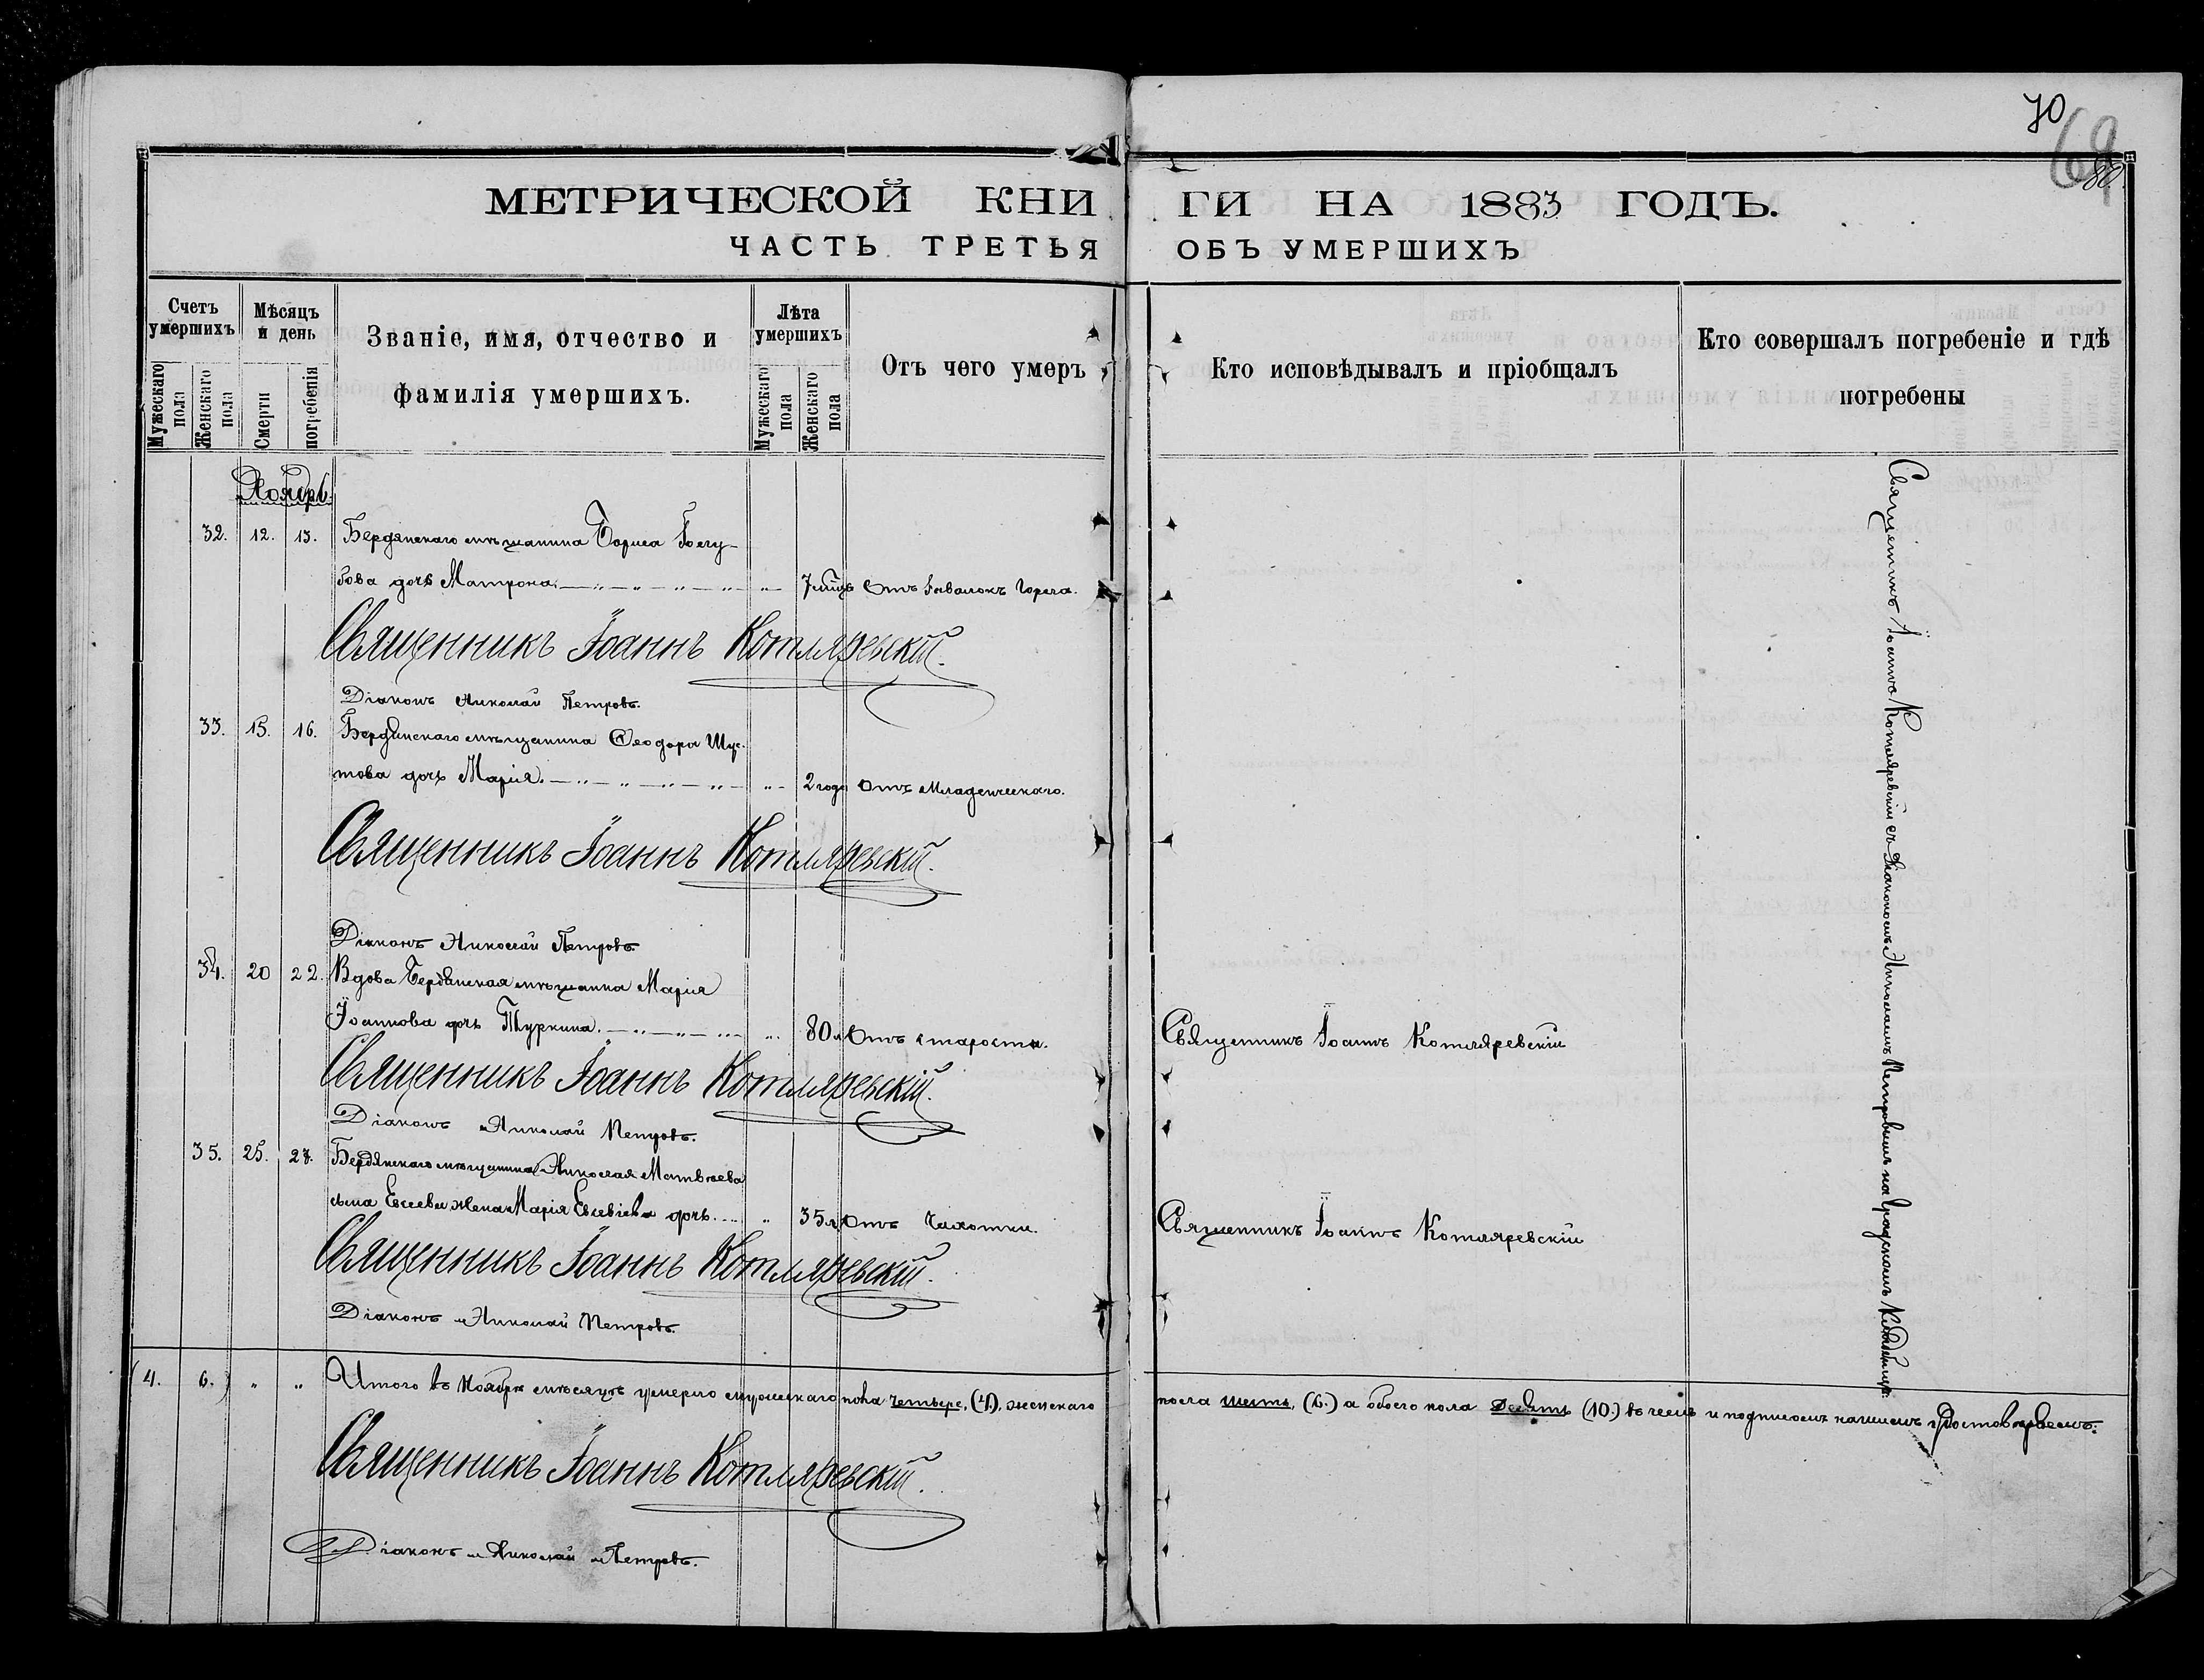 70
69
80.
МЕТРИЧЕСКОЙ КНИГИ НА 1883 ГОДЪ.
ЧАСТЬ ТРЕТЬЯ ОБЪ УМЕРШИХЪ
Счетъ умершихъ
Мужескаго пола
Женскаго пола
Мѣсяцъ и день
Смерти
погребенія
Званіе, имя, отчество и
фамилія умершихъ.
Лѣта умершихъ
Мужескаго пола
Женскаго пола
Отъ чего умеръ
Кто исповѣдывалъ и пріобщалъ
Кто совершалъ погребеніе и гдѣ
погребены
Ноябрь.
32. 12. 13. Бердянскаго мѣщанина Бориса
дочь Матрона 7 Отъ горла.
Священникъ Іоаннъ Котляревскій.
Діаконъ Николай Петровъ.
33. 15. 16. Бердянскаго мѣщанина Ѳеодора Шус-
това дочь Марія. 2 года Отъ младенческаго.
Священникъ Іоаннъ Котляревскій.
Діаконъ Николай Петровъ.
34. 20 22. Вдова Бердянская мѣщанка Марія
Іоаннова дочь Туркина. 80 л Отъ старости. Священникъ Іоаннъ Котляревскій
Священникъ Іоаннъ Котляревскій.
Діаконъ Николай Петровъ.
35. 25. 27. Бердянскаго мѣщанина Николая Матвѣева
сына Евсеева жена Марія дочь. 35 л Отъ чахотки. Священникъ Іоаннъ Котляревскій
Священникъ Іоаннъ Котляревскій.
Діаконъ Николай Петровъ.
Священникъ Іоаннъ Котляревскій съ Діакономъ Николаемъ Петровымъ на градскомъ кладбищѣ.
(4. 6.) " " Итого въ Ноябрѣ мѣсяцѣ умерло мужескаго пола четыре, (4.), женскаго пола шесть, (6.) а обоего пола десять (10.) въ чемъ и подписомъ нашимъ удостовѣряемъ:
Священникъ Іоаннъ Котляревскій.
Діаконъ Николай Петровъ.